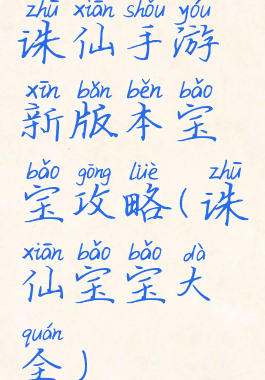 zhū xiān shǒu yóu
诛仙手游
xīn bǎn běn bǎo
新版本宝
bǎo gōng lüè zhū
宝攻略(诛
xiān bǎo bǎo dà
仙宝宝大
quán
全)